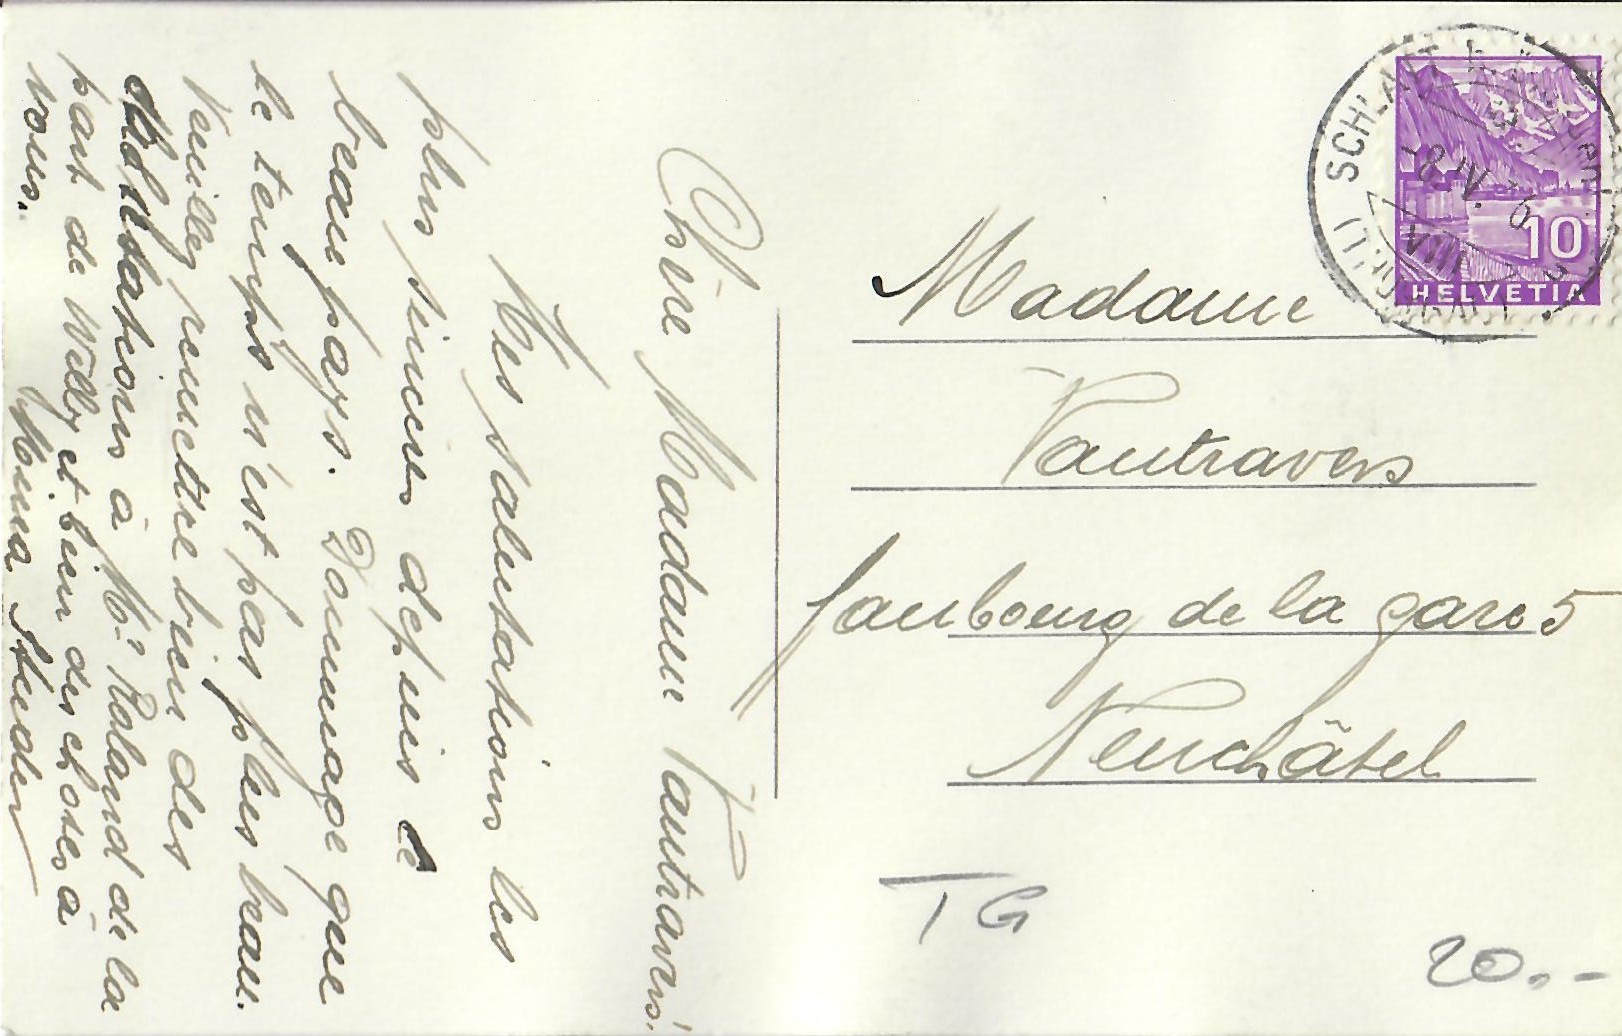 Chère Madame Vautravers!
Mes salutations les
plus sincères depuis ce
beau pays. Dommage que
le temps n'est pas plus beau.
Veuillez remettre bien des
salutations à Mr. Roland de la
part de Willy et bien des choses à
vous.
Mina Studer
Madame
Vautravers
faubourg de la gare 5
Neuchâtel
TG
20.-
SCHLATT
8.IV.
10
HELVETIA